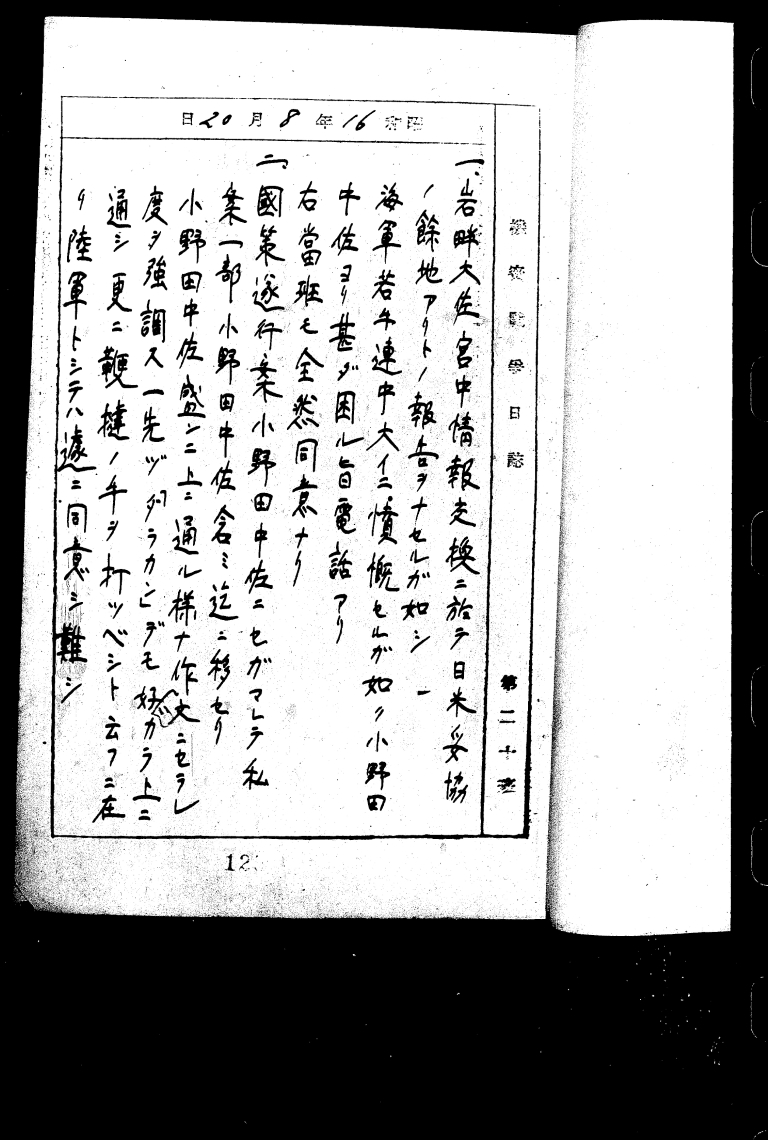 機密戰爭日誌
第二十班
昭和16年8月20日
一、岩畔大佐宮中情報交換ニ於テ日米妥協
ノ餘地アリトノ報告ヲナセルガ如シ 一
海軍若手連中大イニ憤慨セルガ如ク小野田
中佐ヨリ甚ダ困ル旨電話アリ
右當班モ全然同意ナリ
二、國策遂行案小野田中佐ニセガマレテ私
案一部小野田中佐含ミ迄ニ移セリ
小野田中佐盛ンニ上ニ通ル様ナ作文ニセラレ
度ヲ強調ス一先ヅダラカンデモ好カラト上ニ
通シ更ニ鞭撻ノ手ヲ打ツベシト云フニ在
リ陸軍トシテハ遽ニ同意シ難シ
12